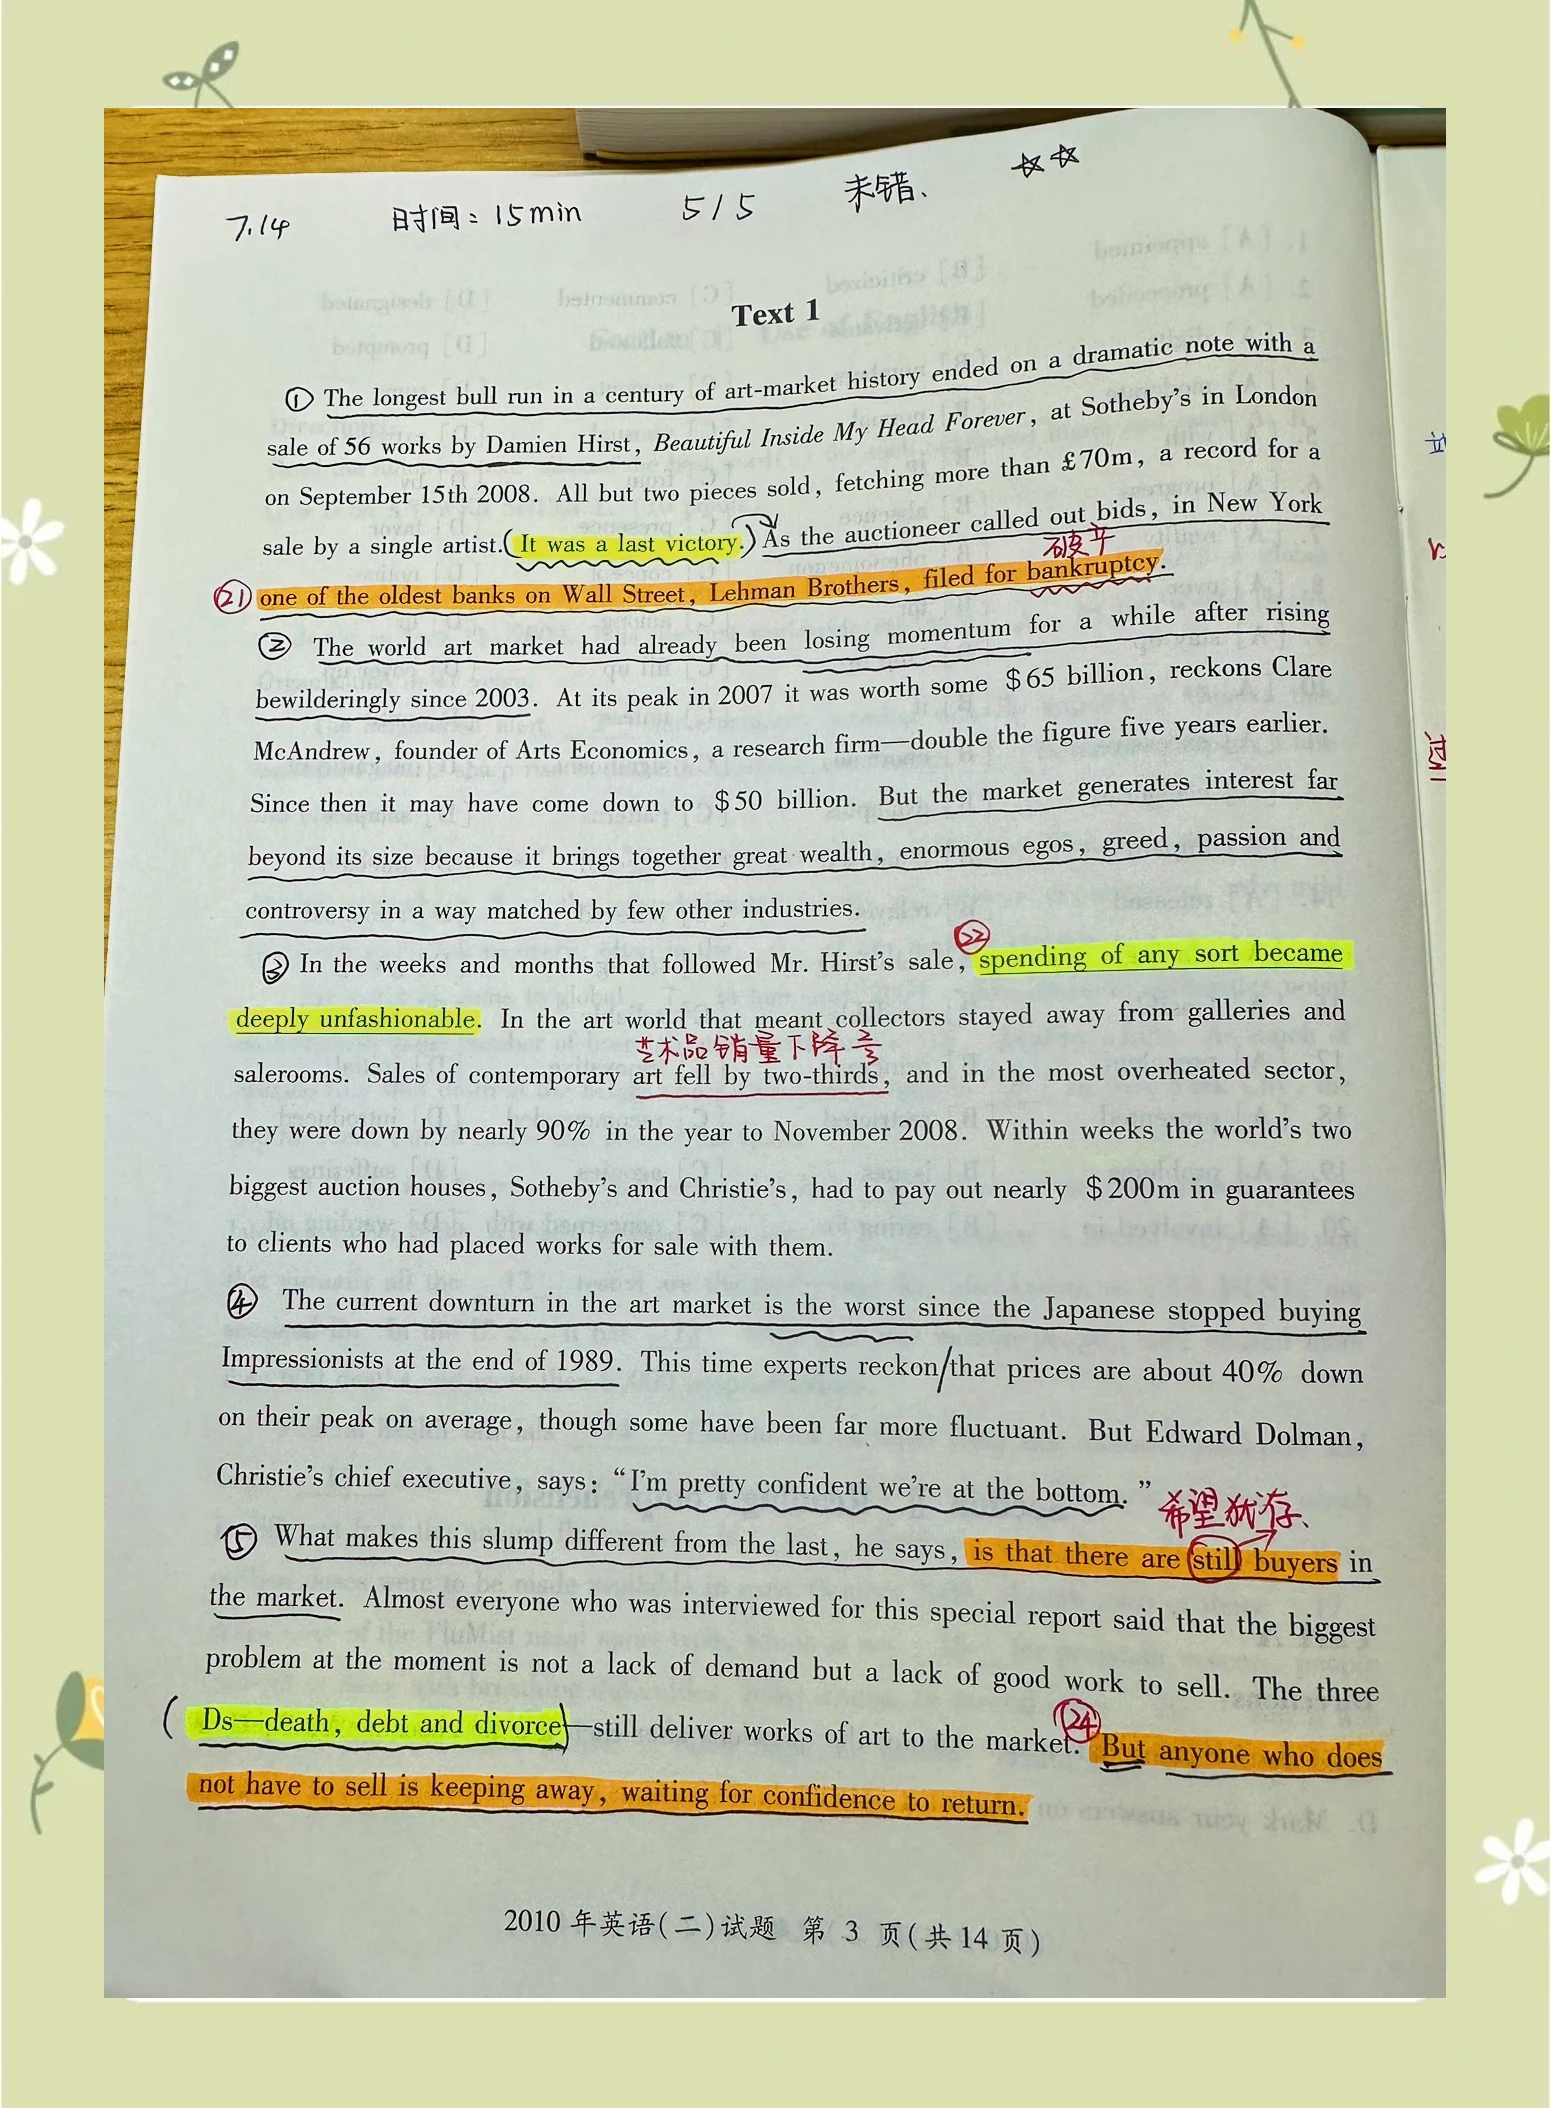 7.14 时间：15min 5/5 未错、 ☆☆
Text 1
① The longest bull run in a century of art-market history ended on a dramatic note with a
sale of 56 works by Damien Hirst, Beautiful Inside My Head Forever, at Sotheby's in London
on September 15th 2008. All but two pieces sold, fetching more than £70m, a record for a
sale by a single artist. (It was a last victory.) As the auctioneer called out bids, in New York
破产
㉑ one of the oldest banks on Wall Street, Lehman Brothers, filed for bankruptcy.
② The world art market had already been losing momentum for a while after rising
bewilderingly since 2003. At its peak in 2007 it was worth some $65 billion, reckons Clare
McAndrew, founder of Arts Economics, a research firm—double the figure five years earlier.
Since then it may have come down to $50 billion. But the market generates interest far
beyond its size because it brings together great wealth, enormous egos, greed, passion and
controversy in a way matched by few other industries.
③ In the weeks and months that followed Mr. Hirst's sale, ㉒ spending of any sort became
deeply unfashionable. In the art world that meant collectors stayed away from galleries and
艺术品销量下降
salerooms. Sales of contemporary art fell by two-thirds, and in the most overheated sector,
they were down by nearly 90% in the year to November 2008. Within weeks the world's two
biggest auction houses, Sotheby's and Christie's, had to pay out nearly $200m in guarantees
to clients who had placed works for sale with them.
④ The current downturn in the art market is the worst since the Japanese stopped buying
Impressionists at the end of 1989. This time experts reckon/that prices are about 40% down
on their peak on average, though some have been far more fluctuant. But Edward Dolman,
Christie's chief executive, says: "I'm pretty confident we're at the bottom."
希望犹存、
⑤ What makes this slump different from the last, he says, is that there are still buyers in
the market. Almost everyone who was interviewed for this special report said that the biggest
problem at the moment is not a lack of demand but a lack of good work to sell. The three
(Ds—death, debt and divorce)—still deliver works of art to the market. ㉔ But anyone who does
not have to sell is keeping away, waiting for confidence to return.
2010 年英语(二)试题 第 3 页(共14 页)